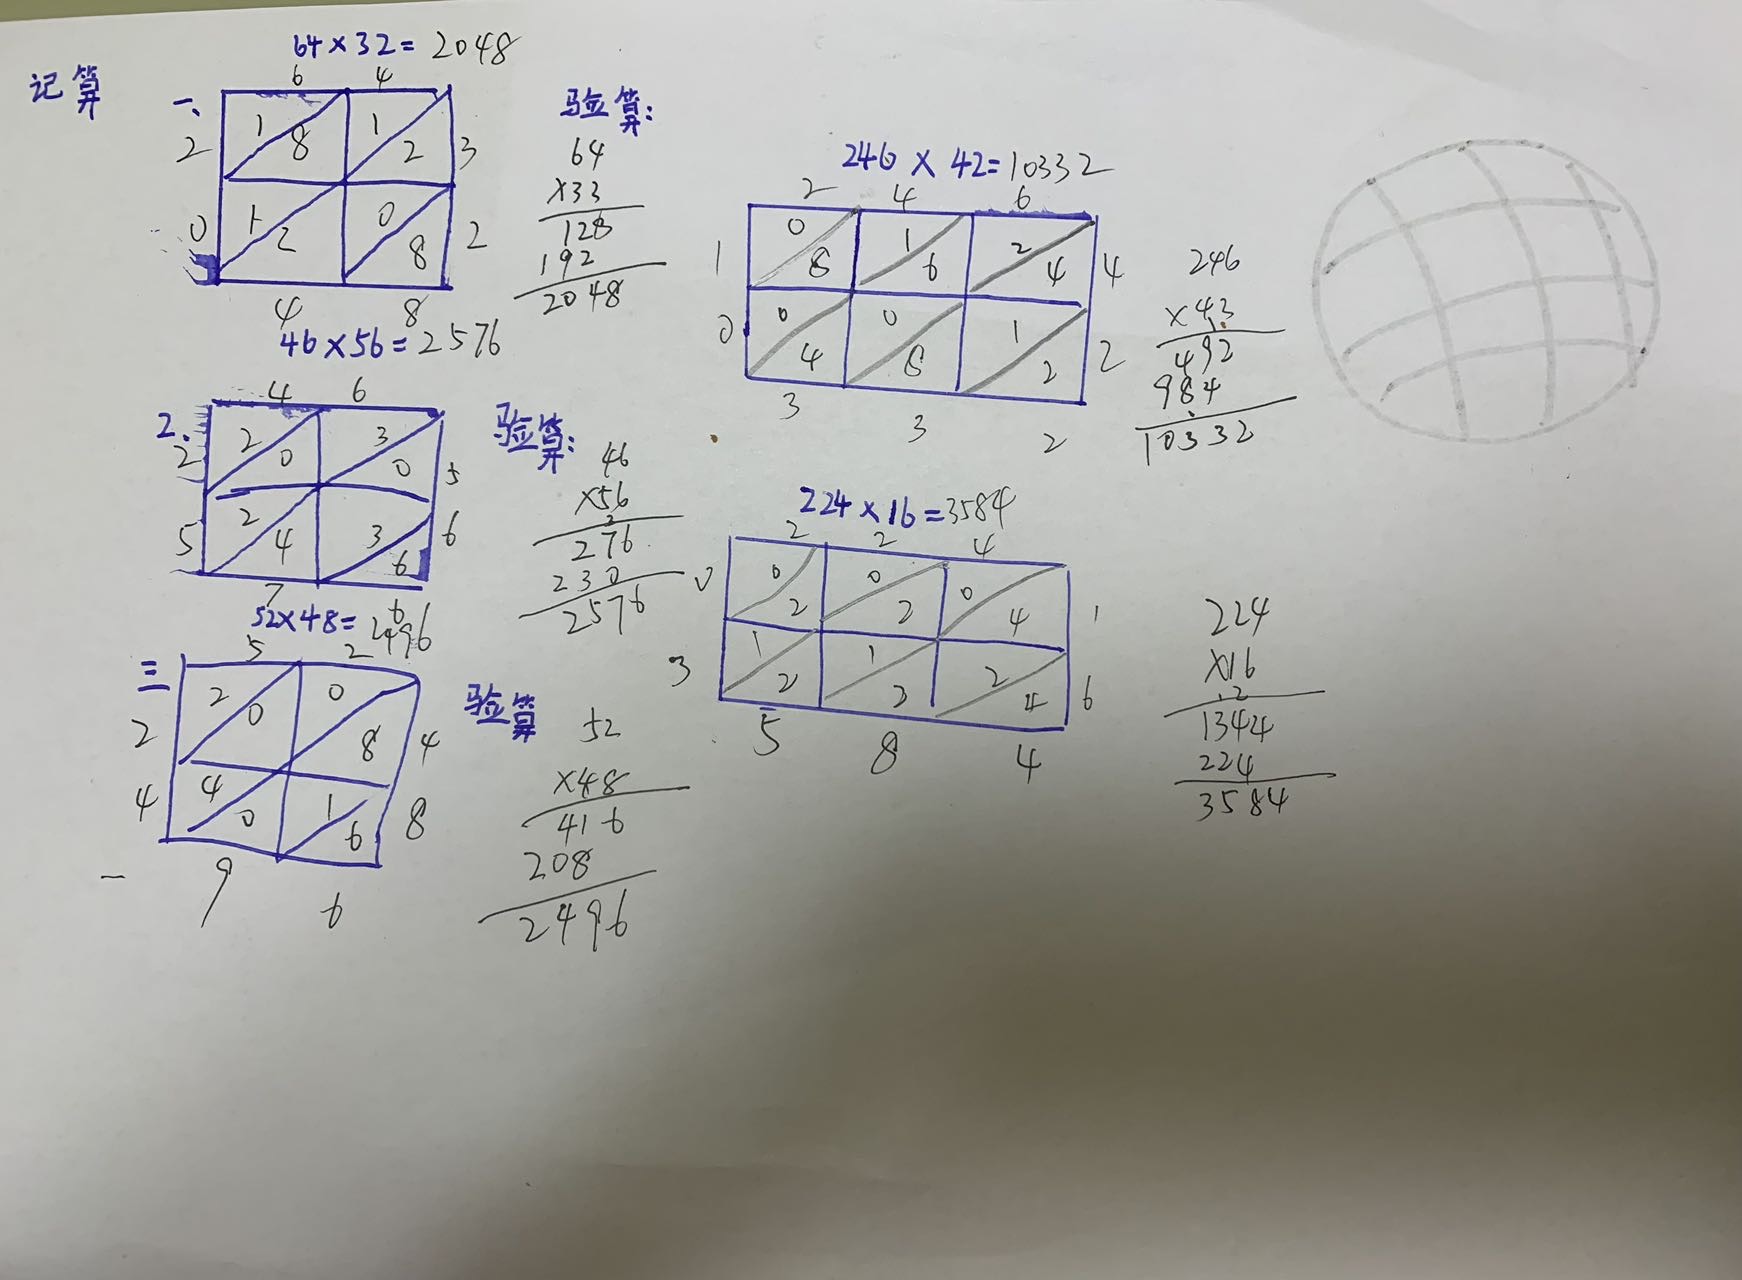 记算
64×32=2048
一、
6 4
1 8 1 2
2 3
1 2 0 8
0 2
4 8
验算:
64
×33
128
192
2048
46×56=2576
2、
4 6
2 0 3 0
2 5
2 4 3 6
5 6
7 6
验算:
46
×56
2
276
230
2576
52×48=2496
三
5 2
2 0 0 8
2 4
4 0 1 6
4 8
9 6
验算
52
×48
416
208
2496
246×42=10332
2 4 6
0 8 1 6 2 4
1 4
0 4 0 8 1 2
0 2
3 3 2
246
×43
1
492
984
10332
224×16=3584
2 2 4
0 2 0 2 0 4
0 1
1 2 1 2 2 4
3 6
5 8 4
224
×16
12
1344
224
3584